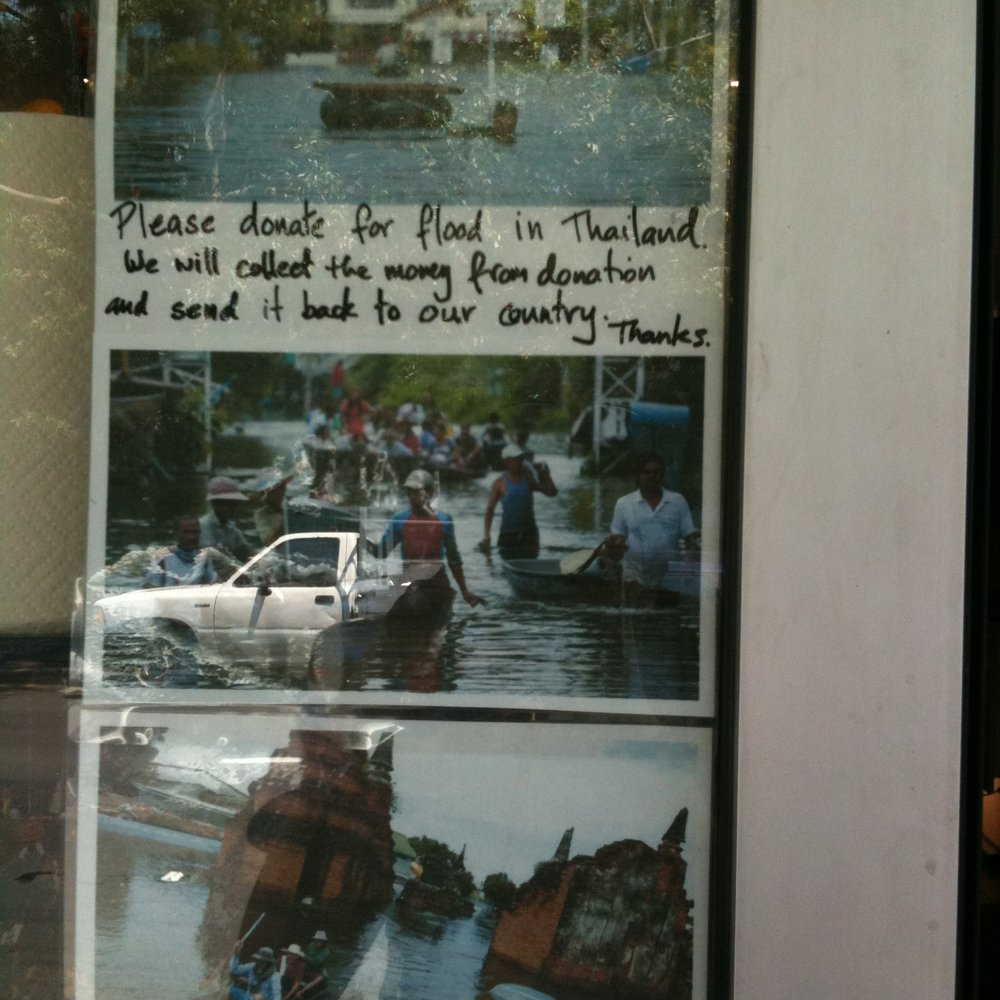 Please donate for flood in Thailand.
We will collect the money from donation
and send it back to our country.
Thanks.